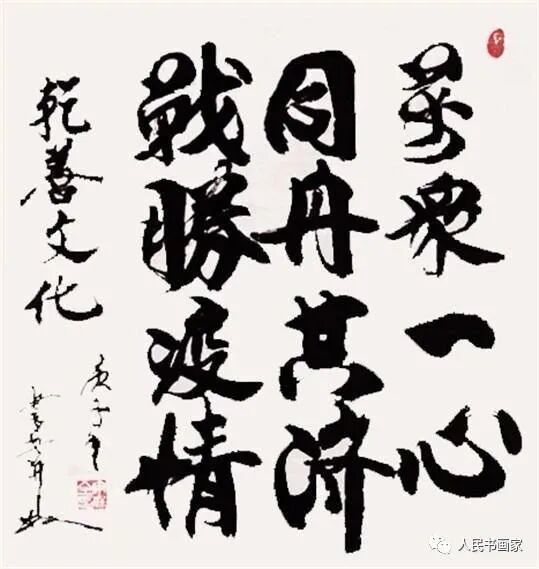 萬眾一心
同舟共济
戰勝疫情
乾善文化
庚子年
人民书画家